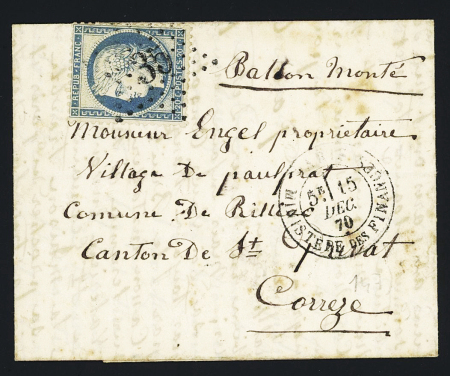 REPUB. FRANC.
35
Ballon Monté
Monsieur Engel propriétaire
Village De paulprat
Comune De Rilhac
Canton De St privat
Correze
MINISTERE DES FINANCES
5E 15
DEC.
70